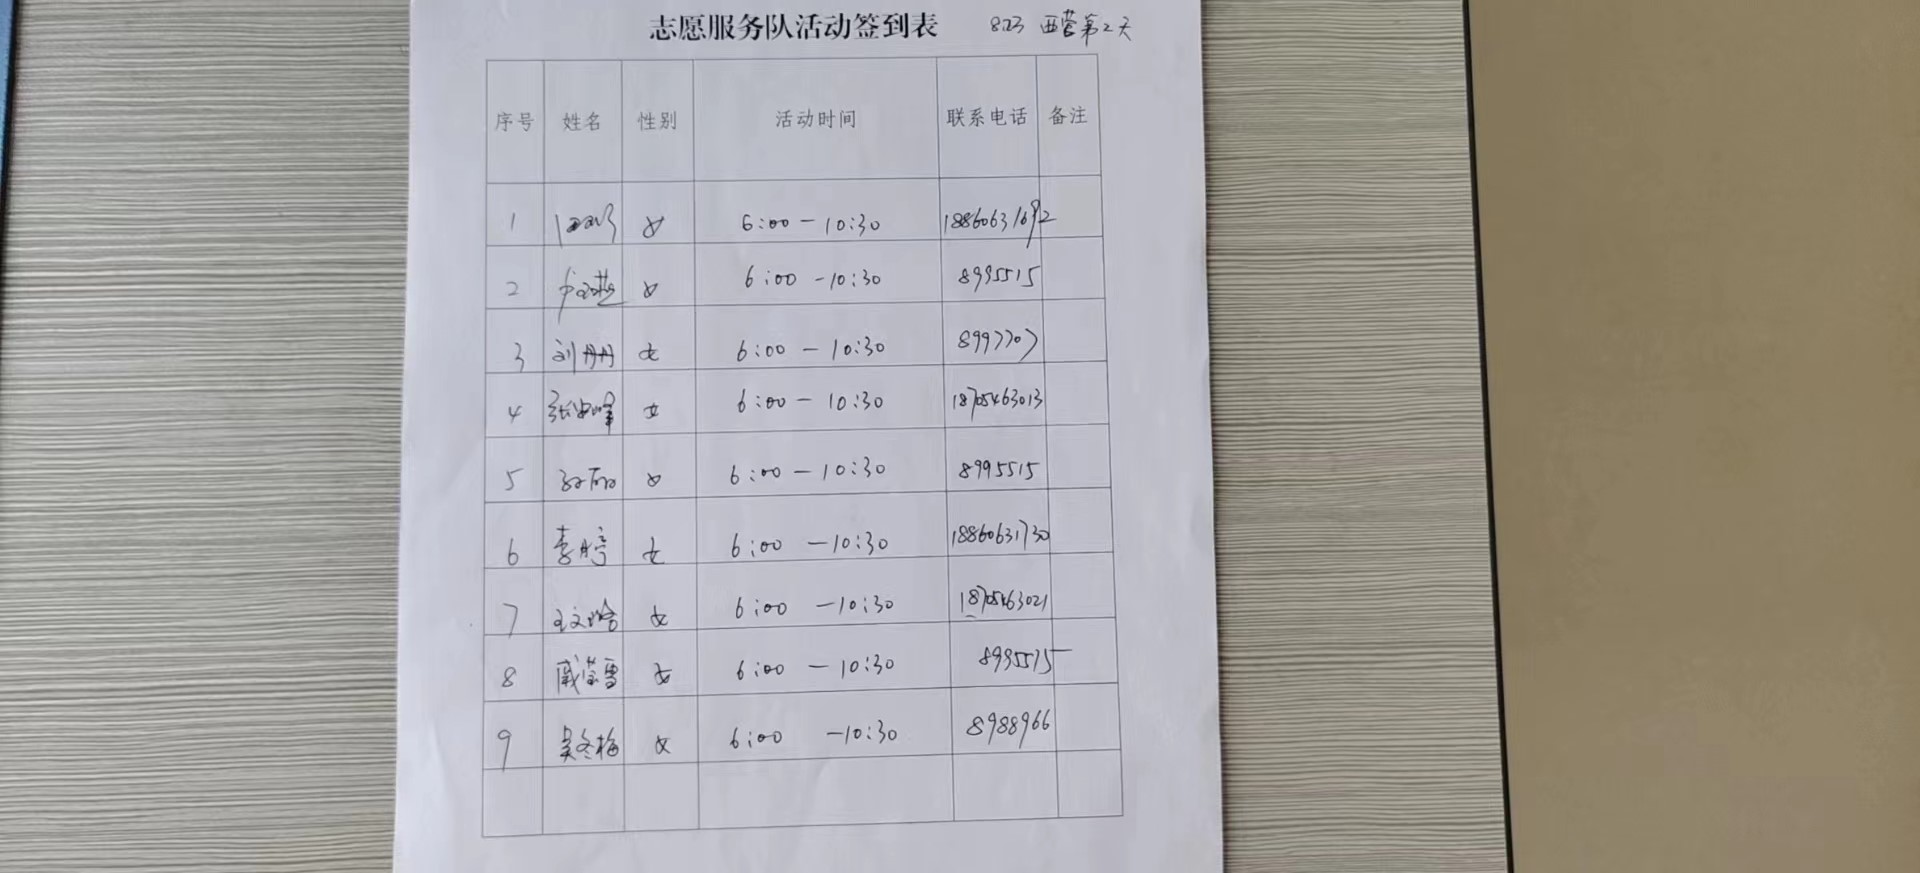 志愿服务队活动签到表 8.23 西营第2天
序号 姓名 性别 活动时间 联系电话 备注
1 女 6:00-10:30 18860631692
2 女 6:00-10:30 8995515
3 刘丹丹 女 6:00-10:30 8997707
4 女 6:00-10:30 18705463013
5 女 6:00-10:30 8995515
6 李婷 女 6:00-10:30 18860631730
7 王文晗 女 6:00-10:30 18705463021
8 戚莹雪 女 6:00-10:30 8995515
9 吴冬梅 女 6:00-10:30 8988966